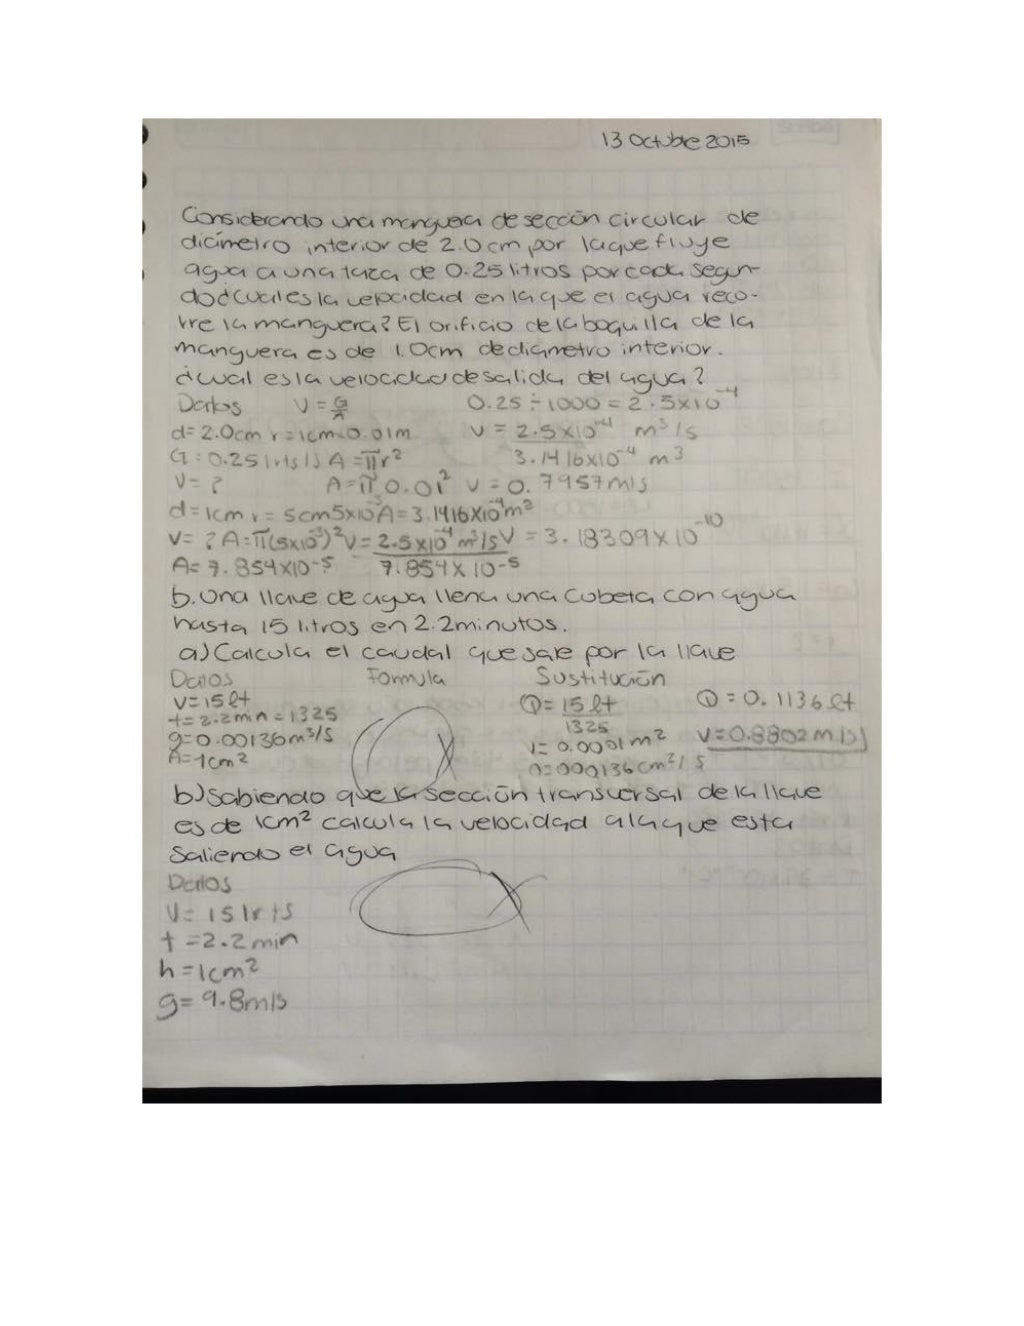 13 Octubre 2015
Considerando una manguera de sección circular de
diámetro interior de 2.0cm por la que fluye
agua a una taza de 0.25 litros por cada segun-
do ¿cual es la velocidad en la que el agua reco-
rre la manguera? El orificio de la boquilla de la
manguera es de 1.0cm de diametro interior.
¿cual es la velocidad de salida del agua?
Datos V = G/A 0.25 ÷ 1000 = 2.5x10⁻⁴
d= 2.0cm r=1cm 0.01m V = 2.5x10⁻⁴ m³/s
G: 0.25 lrts/s A = πr² 3.1416x10⁻⁴ m³
V= ? A=π 0.01² V= 0.7957m/s
d=1cm r= 5cm 5x10⁻³ A= 3.1416x10⁻⁴m²
V= ? A=π(5x10⁻³)² V= 2.5x10⁻⁴ m³/s V = 3.18309x10⁻¹⁰
A= 7.854x10⁻⁵ 7.854x10⁻⁵
b. Una llave de agua llena una cubeta con agua
hasta 15 litros en 2.2minutos.
a) Calcula el caudal que sale por la llave
Datos Formula Sustitución
V=15lt Q= 15lt Q=0.1136lt
t=2.2min=132s 132s
g=0.00136m³/s V= 0.0001m² V=0.8802m/s
A=1cm² cm²/s
b) Sabiendo que la sección transversal de la llave
es de 1cm² calcula la velocidad a la que esta
saliendo el agua
Datos
V= 15lrts
t=2.2min
h=1cm²
g= 9.8m/s